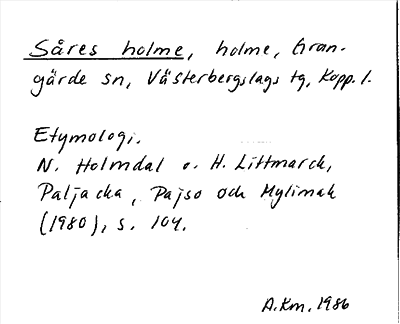 Såres holme, holme, Gran-
gärde sn, Västerbergslags tg, Kopp. l.
Etymologi.
N. Holmdal o. H. Littmarck,
Paljacka, Pajso och Mylimak
(1980), s. 104.
A.Km. 1986